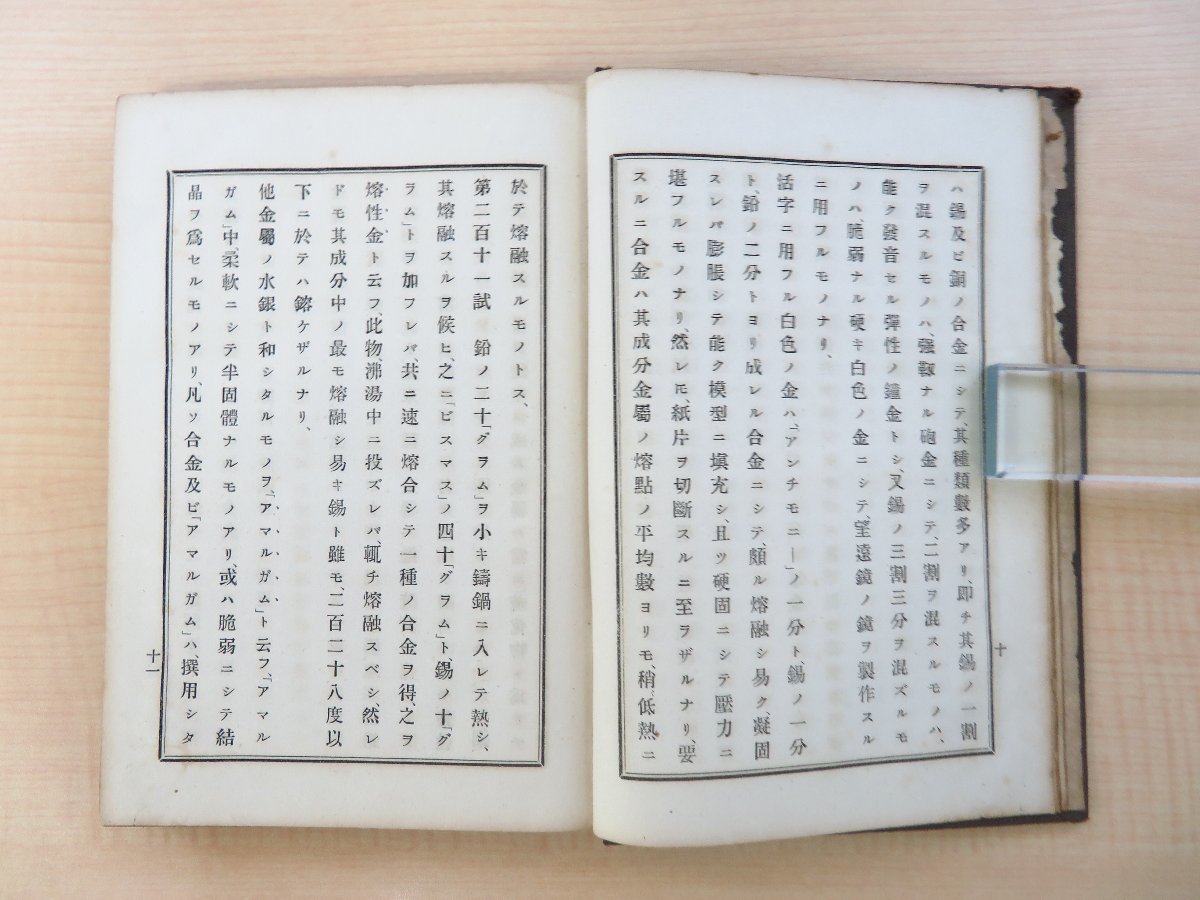 ハ錫及ビ銅ノ合金ニシテ、其種類數多アリ、即チ其錫ノ一割
ヲ混スルモノハ、强靱ナル砲金ニシテ、二割ヲ混スルモノハ、
能ク發音セル彈性ノ鐘金トシ、又錫ノ三割三分ヲ混ズルモ
ノハ、脆弱ナル硬キ白色ノ金ニシテ、望遠鏡ノ鏡ヲ製作スル
ニ用フルモノナリ、
活字ニ用フル白色ノ金ハ、「アンチモニー」ノ一分ト、錫ノ一分
ト、鉛ノ二分トヨリ成レル合金ニシテ、頗ル熔融シ易ク、凝固
スレバ膨脹シテ能ク模型ニ塡充シ、且ツ硬固ニシテ壓力ニ
堪フルモノナリ、然レ𪜈、紙片ヲ切斷スルニ至ラザルナリ、要
スルニ合金ハ其成分金屬ノ熔點ノ平均數ヨリモ、稍低熱ニ
十
於テ熔融スルモノトス、
第二百十一試 鉛ノ二十「グラム」ヲ小キ鑄鍋ニ入レテ熱シ、
其熔融スルヲ候ヒ、之ニ「ビスマス」ノ四十「グラム」ト、錫ノ十「グ
ラム」トヲ加フレバ、共ニ速ニ熔合シテ一種ノ合金ヲ得、之ヲ
熔性金ト云フ、此物、沸湯中ニ投ズレバ、輒チ熔融スベシ、然レ
ドモ其成分中ノ最モ熔融シ易キ錫ト雖モ、二百二十八度以
下ニ於テハ鎔ケザルナリ、
他金屬ノ水銀ト和シタルモノヲ、「アマルガム」ト云フ、「アマル
ガム」中、柔軟ニシテ半固體ナルモノアリ、或ハ脆弱ニシテ結
晶ヲ爲セルモノアリ、凡ソ合金及ビ「アマルガム」ハ、撰用シタ
十一